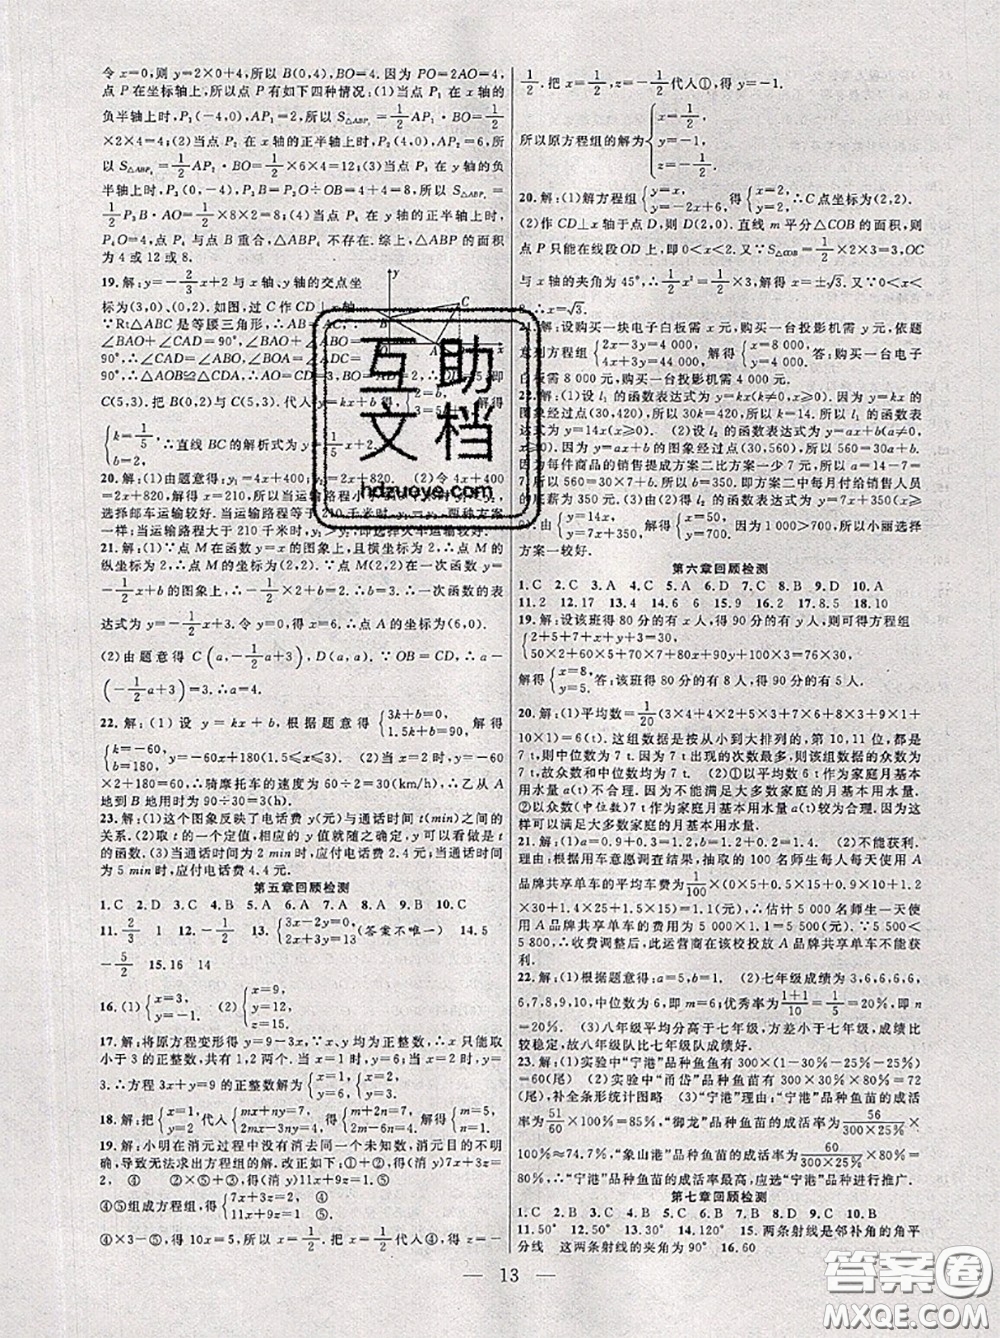 令 x=0,则 y=2×0+4,所以 B(0,4),BO=4. 因为 PO=2AO=4,当
点 P 在坐标轴上时,所以点 P 有如下四种情况:(1)当点 P₁ 在 x 轴的
负半轴上时,P₁(-4,0),AP₁=2,所以 S△ABP₁=1/2 AP₁·BO=1/2×
2×4=4;(2)当点 P₂ 在 x 轴的正半轴上时,P₂(4,0),AP₂=6,所
以 S△ABP₂=1/2 AP₂·BO=1/2×6×4=12;(3)当点 P₃ 在 y 轴的负
半轴上时,P₃(0,-4),BP₃=P₃O+OB=4+4=8,所以 S△ABP₃=
1/2 P₃B·AO=1/2×8×2=8;(4)当点 P₄ 在 y 轴的正半轴上时,
P₄(0,4),点 P₄ 与点 B 重合,△ABP₄ 不存在. 综上,△ABP 的面积
为 4 或 12 或 8.
19. 解:y=-2/3x+2 与 x 轴、y 轴的交点坐
标为(3,0)、(0,2). 如图,过 C 作 CD⊥x 轴
∵Rt△ABC 是等腰三角形,∴AB=
∠BAO+∠CAD=90°,∠BAO+∠
90°,∴∠CAD=∠ABO=∠BOA=∠ADC
=90°. ∴△AOB≌△CDA.
C(5,3). 把 B(0,2)与 C(5,3). 代人 y=kx+b
{k=1/5, b=2. ∴直线 BC 的解析式为 y=1/5x+2.
20. 解:(1)由题意得:y₁=4x+400,y₂=2x+820. (2)令 4x+400
=2x+820,解得 x=210,所以当运输路程小
选择邮车运输较好. 当运输路程等于 210 千米时,y₁=y₂,两种方案
一样;当运输路程大于 210 千米时,y₁>y₂,则选择火车运输较好.
21. 解:(1)∵点 M 在函数 y=x 的图象上,且横坐标为 2,∴点 M 的
纵坐标为 2. ∵点 M(2,2)在一次函数
-1/2x+b 的图象上,∴-1/2×2+b=2,∴b=3,∴一次函数的表
达式为 y=-1/2x+3. 令 y=0,得 x=6. ∴点 A 的坐标为(6,0).
(2)由题意得 C(a,-1/2a+3),D(a,a). ∵OB=CD,∴a-
(-1/2a+3)=3. ∴a=4.
22. 解:(1)设 y=kx+b,根据题意得{3k+b=0, 1.5k+b=90, 解得
{k=-60, b=180, y=-60x+180(1.5≤x≤3). (2)当 x=2 时,y=-60
×2+180=60. ∴骑摩托车的速度为 60÷2=30(km/h). ∴乙从 A
地到 B 地用时为 90÷30=3(h).
23. 解:(1)这个图象反映了电话费 y(元)与通话时间 t(min)之间的
关系. (2)取 t 的一个定值,相应的 y 值就随之确定,y 可以看做是 t
的函数. (3)当通话时间为 2 min 时,应付电话费 2.4 元;当通话时间
为 5 min 时,应付电话费 4.4 元.
第五章回顾检测
1. C 2. D 3. A 4. B 5. A 6. A 7. A 8. D 9. C 10. C
11. 2/3 1 12. -1/2 13. {3x-2y=0, 3x+2y=13(答案不唯一) 14. 5
-5/2 15. 16 14
16. (1){x=3, y=-1. (2){x=9, y=12, z=15.
17. 解:将原方程变形得 y=9-3x,∵x,y 均为正整数,∴x 只能取
小于 3 的正整数,共有 1,2 两个. 当 x=1 时,y=6;当 x=2 时,y=
3. ∴方程 3x+y=9 的正整数解为{x=1, y=6, {x=2, y=3.
18. 解:把{x=1, y=2 代人{mx+ny=7, 2mx-3ny=4, 得{m+2n=7, 2m-6n=4. 解得{m=5, n=1.
19. 解:小明在消元过程中没有消去同一个未知数,消元目的不明
确,导致无法求出方程组的解. 改正如下:①+②,得(消 y)7x+3z=
4 ④ ②×2+③,得(消 y)11x+9z=2 ⑤
④⑤组成方程组,得{7x+3z=4, ④ 11x+9z=2. ⑤
④×3-⑤,得 10x=5,所以 x=1/2. 把 x=1/2 代入④,得 z=-
1/2. 把 x=1/2,z=-1/2代人①,得 y=-1.
所以原方程组的解为{x=1/2, y=-1, z=-1/2.
20. 解:(1)解方程组{y=x, y=-2x+6, 得{x=2, y=2. ∴C 点坐标为(2,2).
(2)作 CD⊥x 轴于点 D,则 D(2,0). 直线 m 平分△COB 的面积,则
点 P 只能在线段 OD 上,即 0<x<2. 又∵S△COB=1/2×2×3=3,OC
与 x 轴的夹角为 45°,∴1/2x²=1/2×3,解得 x=±√3. ∵0<x<
2,∴x=√3.
21. 解:设购买一块电子白板需 x 元,购买一台投影机需 y 元,依题
意列方程组{2x-3y=4 000, 4x+3y=44 000. 解得{x=8 000, y=4 000. 答:购买一台电子
白板需 8 000 元,购买一台投影机需 4 000 元.
22. 解:(1)设 l₁ 的函数表达式为 y=kx(k≠0,x≥0). 因为 l₁ 的
图象经过点(30,420),所以 30k=420,所以 k=14. 所以 l₁ 的函数
表达式为 y=14x(x≥0). (2)设 l₂ 的函数表达式为 y=ax+b(x≥
0). 因为 y=ax+b 的图象经过点(30,560),所以 560=30a+b,
因为每件商品的销售提成方案二比方案一少 7 元,所以 a=14-7=
7. 所以 560=30×7+b,所以 b=350. 即方案二中每月付给销售人员
的底薪为 350 元. (3)由(2)得 l₂ 的函数表达式为 y=7x+350(x≥
0). 由{y=14x, y=7x+350, 解得{x=50, y=700. 因为 1 000>700,所以小丽选择
方案一较好.
第六章回顾检测
1. C 2. C 3. A 4. C 5. A 6. D 7. C 8. B 9. D 10. A
11. 2 12. 17 13. 4 14. 6 6 15. 9 16. 2 17. 8.5 18. 10
19. 解:设该班得 80 分的有 x 人,得 90 分的有 y 人,则可得方程组
{2+5+7+x+y+3=30, 50×2+60×5+70×7+80x+90y+100×3=76×30,
解得{x=8, y=5. 答:该班得 80 分的有 8 人,得 90 分的有 5 人.
20. 解:(1)平均数=1/20(3×4+4×2+5×1+6×3+7×6+8×3+9×1+
10×1)=6(t). 这组数据是按从小到大排列的,第 10,11 位,都是
7 t,则中位数为 7 t. 因为 7 t 出现的次数最多,则该组数据的众数为
7 t,故众数和中位数均为 7 t. (2)①以平均数 6 t 作为家庭月基本
用水量 a(t)不合理. 因为不能满足大多数家庭的月基本用水量.
②以众数(中位数)7 t 作为家庭月基本用水量 a(t)较为合理. 因为这
样可以满足大多数家庭的月基本用水量.
21. 解:(1)a=0.9+0.3=1.2,b=1.2+0.2=1.4. (2)不能获利.
理由:根据用车意愿调查结果,抽取的 100 名师生每人每天使用 A
品牌共享单车的平均车费为 1/100×(0×5+0.5×15+0.9×10+1.2
×30+1.4×25+1.5×15)=1.1(元),∴估计 5 000 名师生一天使
用 A 品牌共享单车的总车费为 5 000×1.1=5 500(元). ∵5 500<
5 800,∴收费调整后,此运营商在该校投放 A 品牌共享单车不能获
利.
22. 解:(1)根据题意得:a=5,b=1. (2)七年级成绩为 3,6,6,6,6,
6,7,8,9,10,中位数为 6,即 m=6;优秀率为(1+1)/10=1/5=20%,即 n
=20%. (3)八年级平均分高于七年级,方差小于七年级,成绩比
较稳定,故八年级队比七年级队成绩好.
23. 解:(1)实验中“宁港”品种鱼鱼有 300×(1-30%-25%-25%)
=60(尾) (2)实验中“甬岱”品种鱼苗有 300×30%×80%=72
(尾),补全条形统计图略 (3)“宁港”理由:“宁港”品种鱼苗的成活
率为 51/60×100%=85%,“御龙”品种鱼苗的成活率为 56/(300×25%)×
100%≈74.7%,“象山港”品种鱼苗的成活率为 60/(300×25%)×100%=
80%,∴“宁港”品种鱼苗的成活率最高,应选“宁港”品种进行推广.
第七章回顾检测
1. C 2. D 3. B 4. D 5. C 6. B 7. B 8. D 9. C 10. D
11. 50° 12. 50° 13. 30° 14. 120° 15. 两条射线是邻补角的角平
分线 这两条射线的夹角为 90° 16. 60
13
互助
文档
hdzuoye.com
答案圈
MXQE.COM